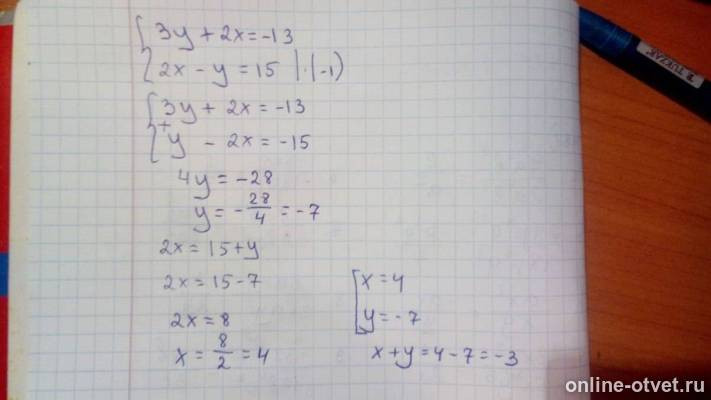 3y + 2x = -13
2x - y = 15 | · (-1)
3y + 2x = -13
+
y - 2x = -15
4y = -28
y = - 28/4 = -7
2x = 15 + y
2x = 15 - 7
2x = 8
x = 8/2 = 4
x = 4
y = -7
x + y = 4 - 7 = -3
B. TUKZAR
online-otvet.ru